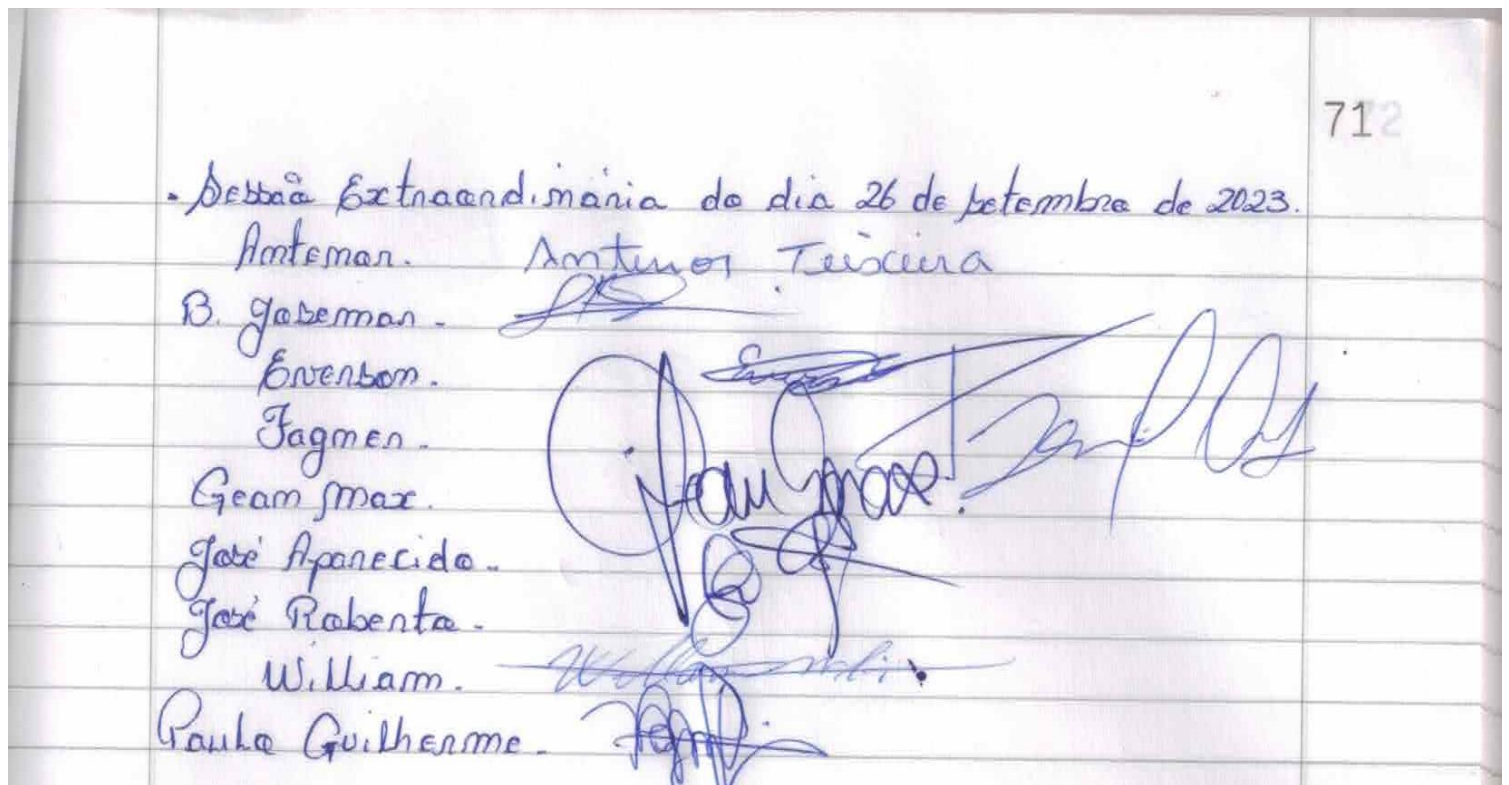 71
. Sessão Extraordinária do dia 26 de setembro de 2023.
Antenor. Antenor Teixeira
B. Josemar.
Everson.
Fagner.
Gean Max. Gean Max.
José Aparecido.
José Roberto.
William.
Paulo Guilherme.